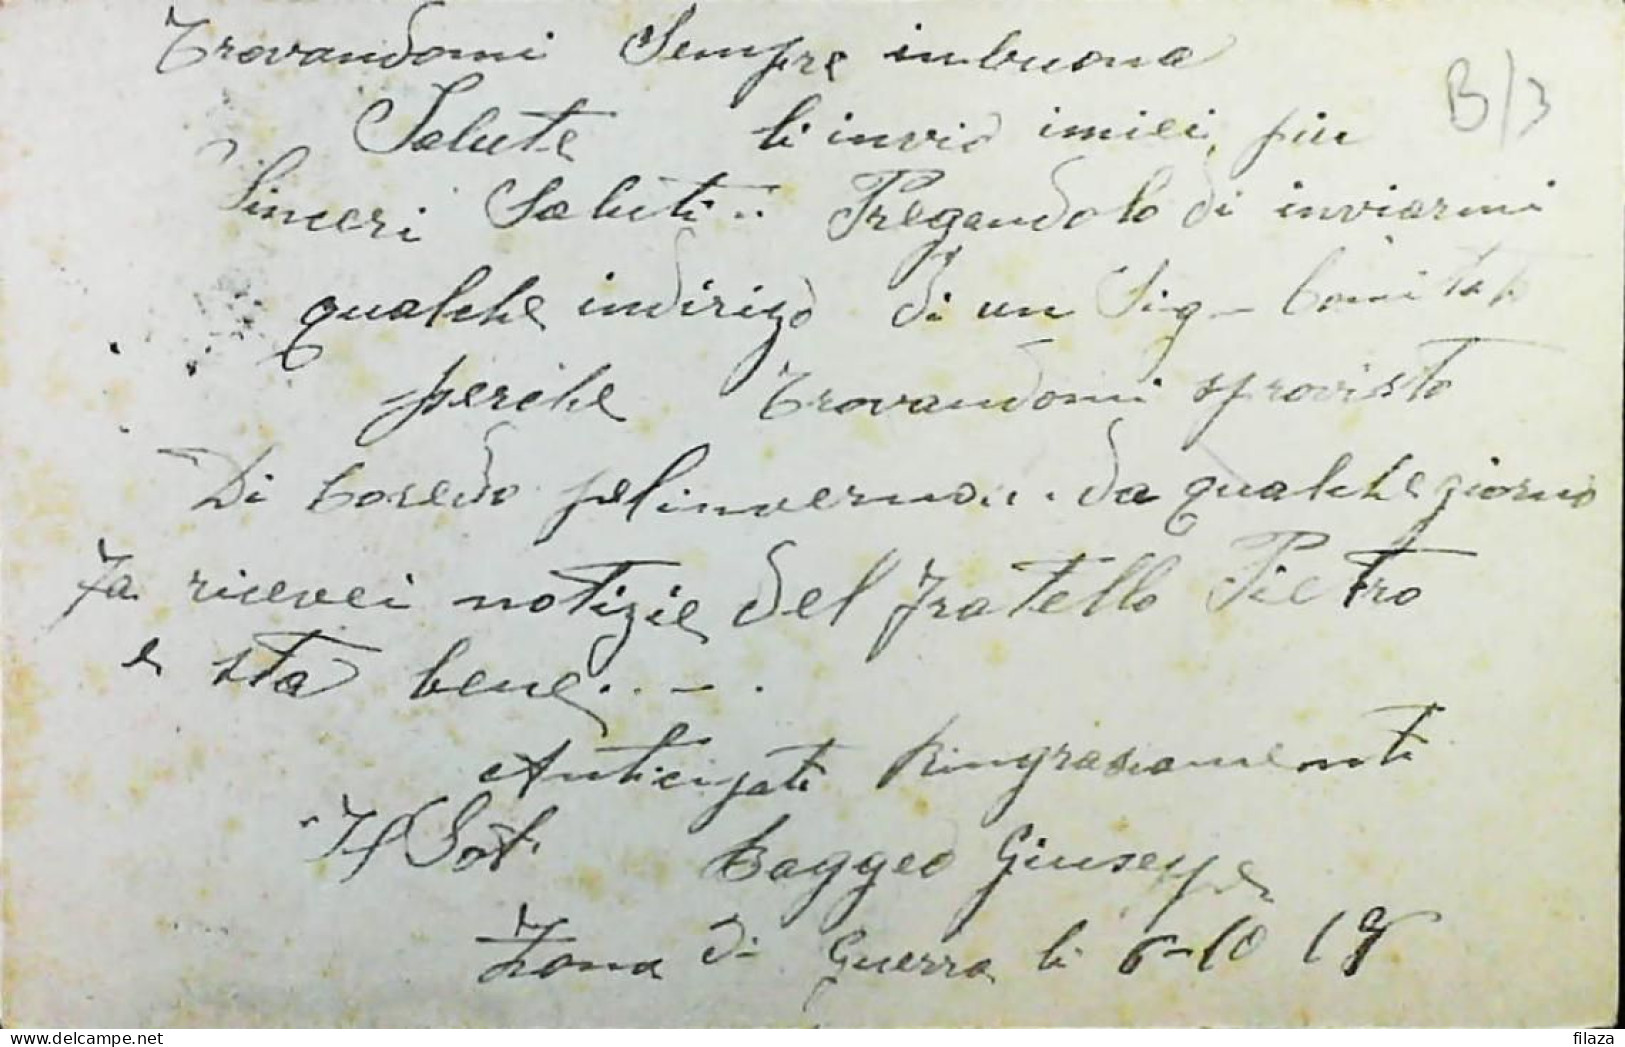 Trovandomi Sempre inbuona
Salute li invio imiei piu
Sinceri Saluti.. Pregandolo di inviarmi
qualche indirizo di un Sig- Comitato
perche trovandomi sprovisto
Di Coredo pelinverno... da qualche giorno
fa ricevei notizie del fratello Pietro
e sta bene...-.
Anticipati Ringrasiamenti
Il Sot. Baggeo Giuseppe
Zona di Guerra li 6-10 19
B/3
delcampe.net
filaza